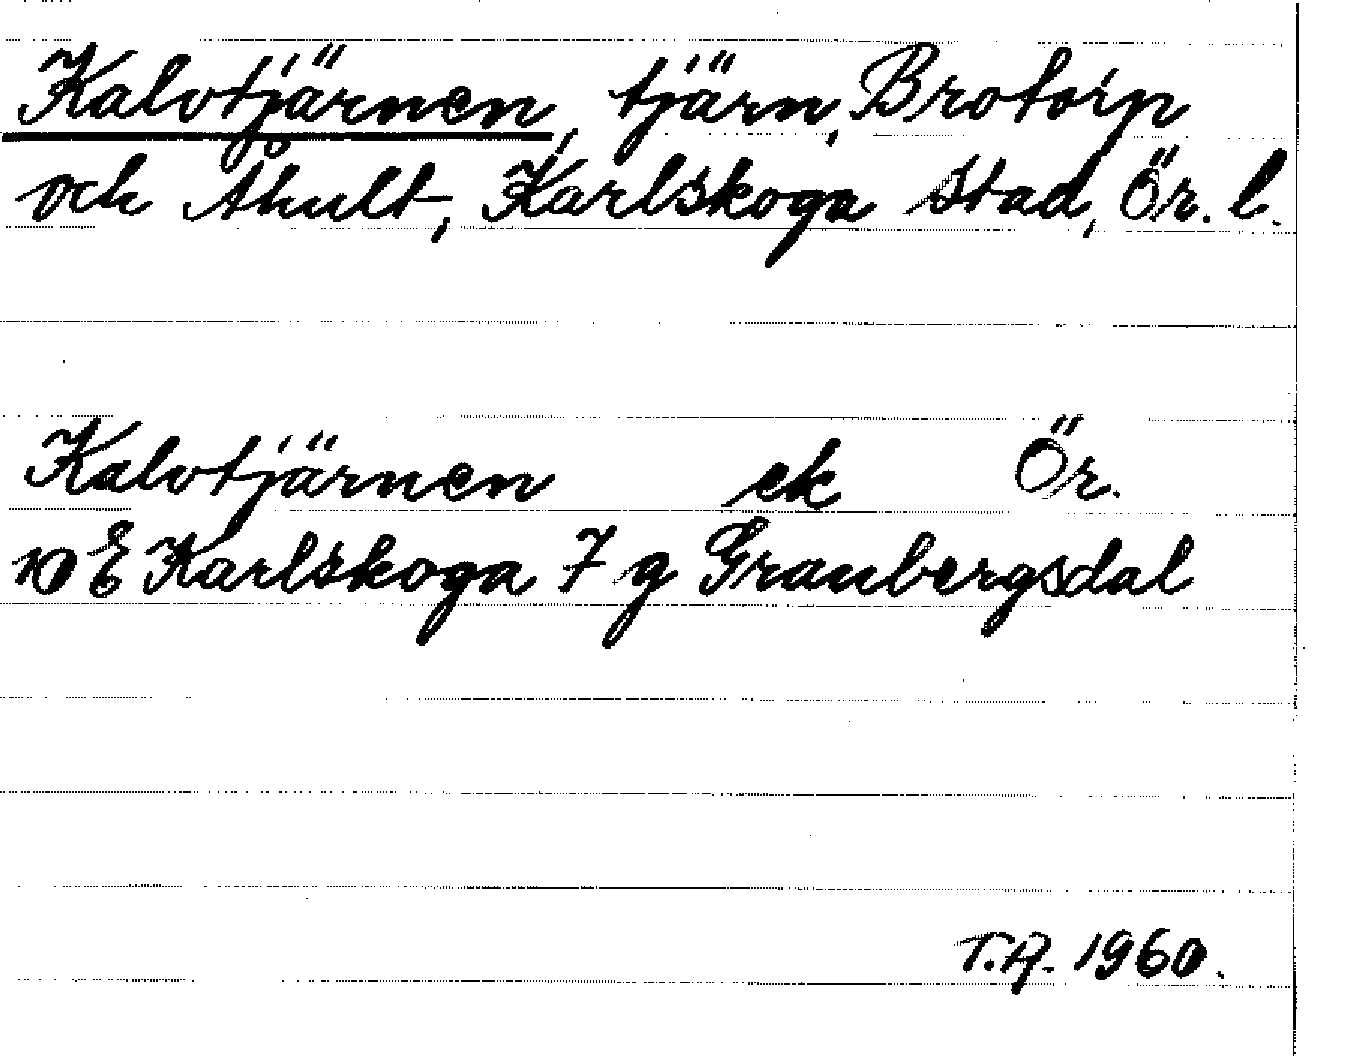 Kalvtjärnen, tjärn, Brotorp
och Åhult, Karlskoga stad, Ör. l.
Kalvtjärnen ek Ör.
10 E Karlskoga 7 g Granbergsdal
T.A. 1960.